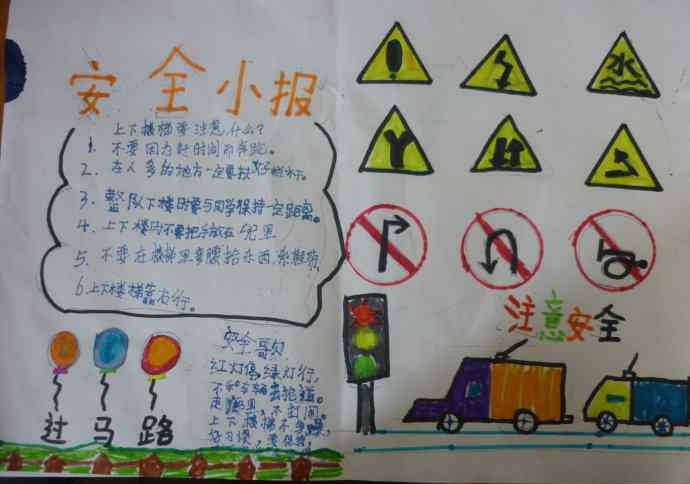 安全小报
上下楼梯要注意什么?
1. 不要因为赶时间而奔跑。
2. 在人多的地方一定要扶好栏杆。
3. 整队下楼时要与同学保持一定距离。
4. 上下楼时不要把手放在兜里
5. 不要在楼梯里弯腰拾东西,系鞋带,
6. 上下楼梯靠右行。
安全歌
红灯停,绿灯行,
不和车辆去抢道
走里,不打闹。
上下楼梯不
好习惯,要保持!
过马路
水
注意安全